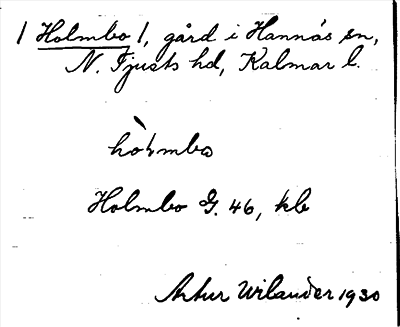 / Holmbo /, gård i Hannås sn,
N. Tjusts hd, Kalmar l.
Holmbo G. 46, kb
Artur Wilander 1930